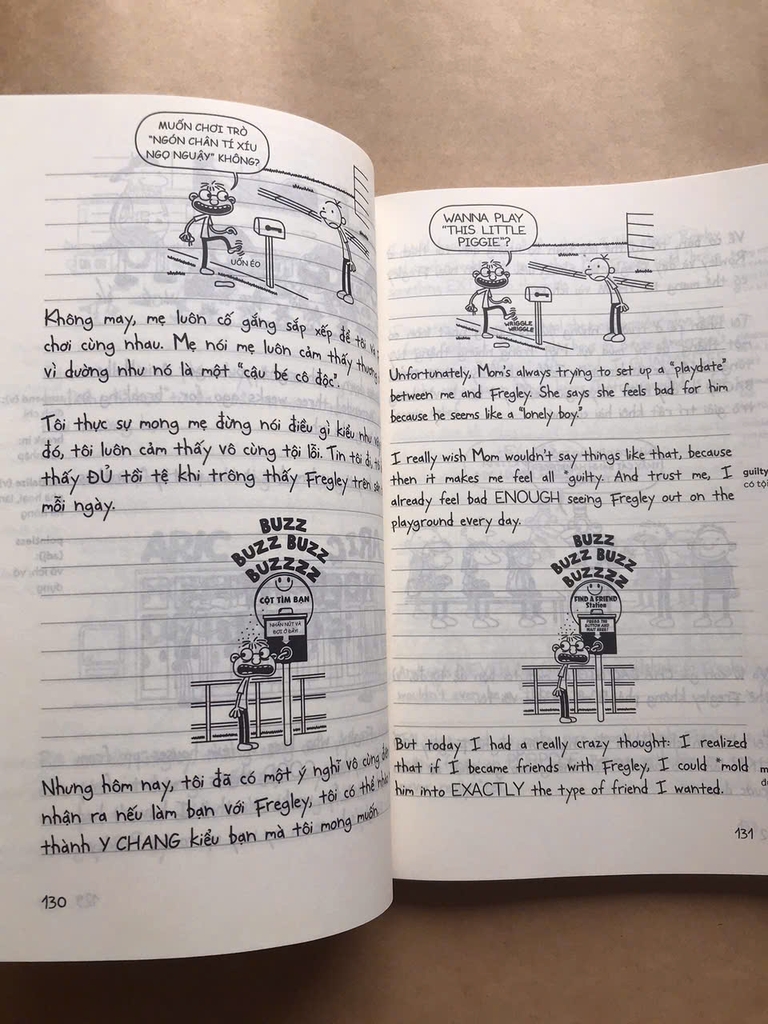 MUỐN CHƠI TRÒ
"NGÓN CHÂN TÍ XÍU
NGỌ NGUẬY" KHÔNG?
UỐN ÉO
Không may, mẹ luôn cố gắng sắp xếp để tôi và
chơi cùng nhau. Mẹ nói mẹ luôn cảm thấy thương
vì dường như nó là một "cậu bé cô độc".
Tôi thực sự mong mẹ đừng nói điều gì kiểu như
đó, tôi luôn cảm thấy vô cùng tội lỗi. Tin tôi đi,
thấy ĐỦ tồi tệ khi trông thấy Fregley trên
mỗi ngày.
BUZZ
BUZZ BUZZ
BUZZZZ
CỘT TÌM BẠN
NHẤN NÚT VÀ
ĐỢI Ở ĐÂY!
Nhưng hôm nay, tôi đã có một ý nghĩ vô cùng
nhận ra nếu làm bạn với Fregley, tôi có thể
thành Y CHANG kiểu bạn mà tôi mong muốn
130
WANNA PLAY
"THIS LITTLE
PIGGIE"?
WRIGGLE
WRIGGLE
Unfortunately, Mom's always trying to set up a "playdate"
between me and Fregley. She says she feels bad for him
because he seems like a "lonely boy."
I really wish Mom wouldn't say things like that, because
then it makes me feel all *guilty. And trust me, I
already feel bad ENOUGH seeing Fregley out on the
playground every day.
guilty
có tội
BUZZ
BUZZ BUZZ
BUZZZZ
FIND A FRIEND
Station
PRESS THE
BUTTON AND
WAIT HERE!
But today I had a really crazy thought: I realized
that if I became friends with Fregley, I could *mold
him into EXACTLY the type of friend I wanted.
131